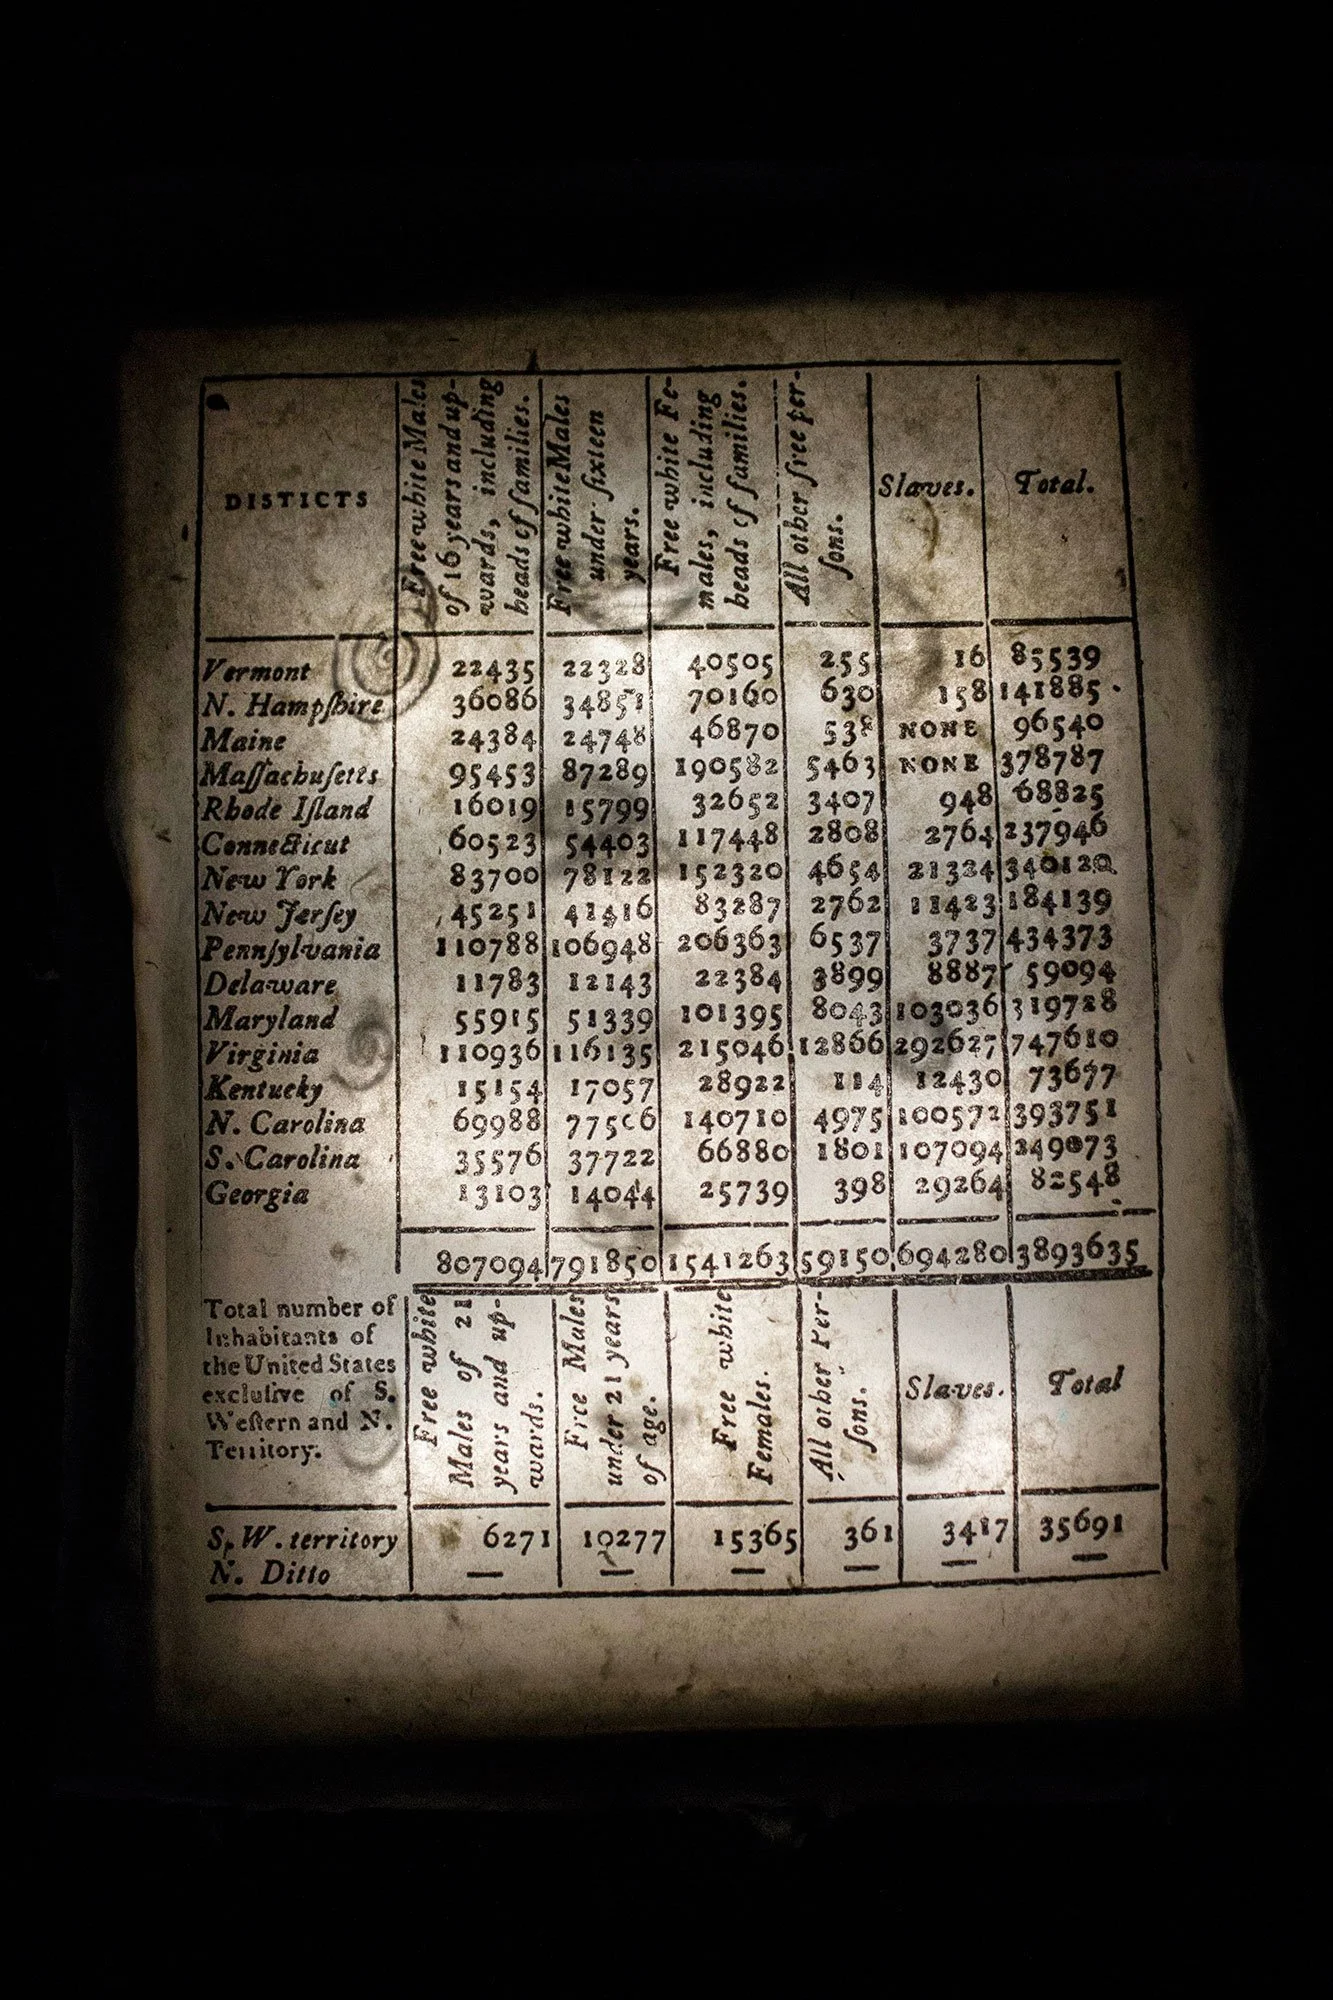 DISTICTS
Free white Males
of 16 years and up-
wards, including
heads of families.
Free white Males
under sixteen
years.
Free white Fe-
males, including
heads of families.
All other free per-
sons.
Slaves.
Total.
Vermont 22435 22328 40505 255 16 85539
N. Hampſhire 36086 34851 70160 630 158 141885
Maine 24384 24748 46870 538 NONE 96540
Maſſachuſetts 95453 87289 190582 5463 NONE 378787
Rhode Iſland 16019 15799 32652 3407 948 68825
Connecticut 60523 54403 117448 2808 2764 237946
New York 83700 78122 152320 4654 21324 340120
New Jerſey 45251 41416 83287 2762 11423 184139
Pennſylvania 110788 106948 206363 6537 3737 434373
Delaware 11783 12143 22384 3899 8887 59094
Maryland 55915 51339 101395 8043 103036 319728
Virginia 110936 116135 215046 12866 292627 747610
Kentucky 15154 17057 28922 114 12430 73677
N. Carolina 69988 77506 140710 4975 100572 393751
S. Carolina 35576 37722 66880 1801 107094 249073
Georgia 13103 14044 25739 398 29264 82548
807094 791850 1541263 59150 694280 3893635
Total number of
Inhabitants of
the United States
excluſive of S.
Weſtern and N.
Territory.
Free white
Males of 21
years and up-
wards.
Free Males
under 21 years
of age.
Free white
Females.
All other Per-
ſons.
Slaves.
Total
S. W. territory 6271 10277 15365 361 3417 35691
N. Ditto — — — — — —